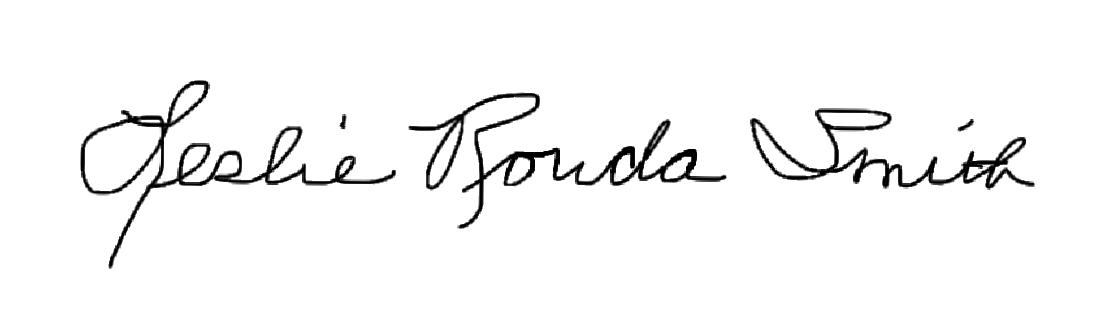 Leslie Ronda Smith